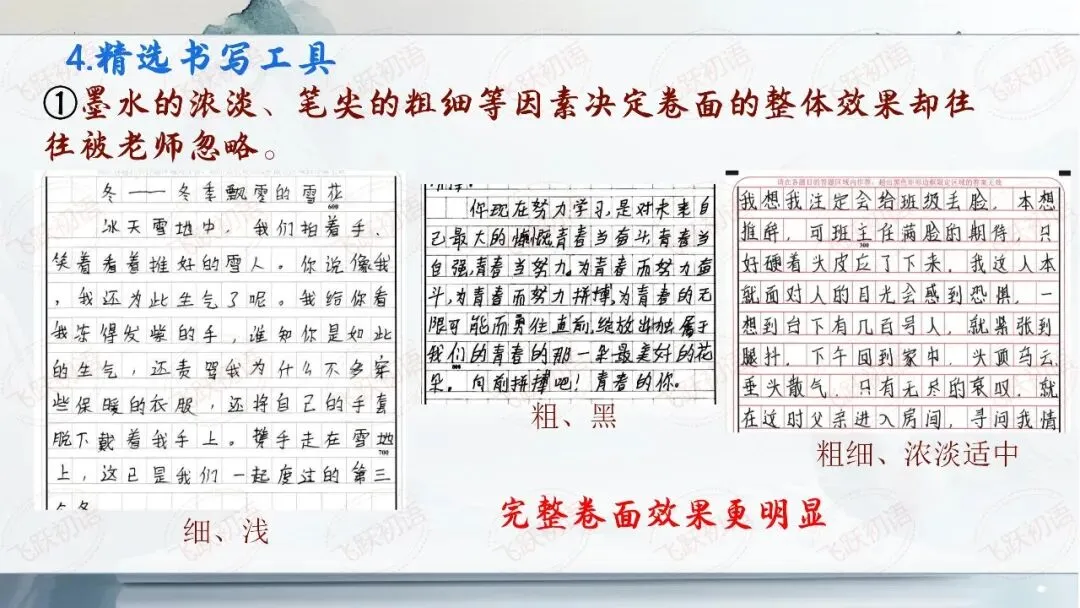 4.精选书写工具
①墨水的浓淡、笔尖的粗细等因素决定卷面的整体效果却往
往被老师忽略。
冬——冬季飘雪的雪花
600
冰天雪地中，我们拍着手、
笑着看着推好的雪人。你说像我
，我还为此生气了呢。我给你看
我冻得发紫的手，谁知你是如此
的生气，还责骂我为什么不多穿
些保暖的衣服，还将自己的手套
脱下戴着我手上。携手走在雪地
700
上，这已是我们一起度过的第三
细、浅
你现在努力学习，是对未来自
己最大的慷慨，青春当奋斗，青春当
自强，青春当努力。为青春而努力奋
斗，为青春而努力拼搏，为青春的无
限可能而勇往直前，绽放出独属于
我们的青春的那一朵最美好的花
800
朵。向前拼搏吧！青春的你。
粗、黑
请在各题目的答题区域内作答，超出黑色矩形边框限定区域的答案无效
我想我注定会给班级丢脸，本想
推辞，可班主任满脸的期待，只
300
好硬着头皮应了下来，我这人本
就面对人的目光会感到恐惧，一
想到台下有几百号人，就紧张到
腿抖。下午回到家中，头顶乌云，
垂头散气，只有无尽的哀叹，就
在这时父亲进入房间，寻问我情
粗细、浓淡适中
完整卷面效果更明显
飞跃初语